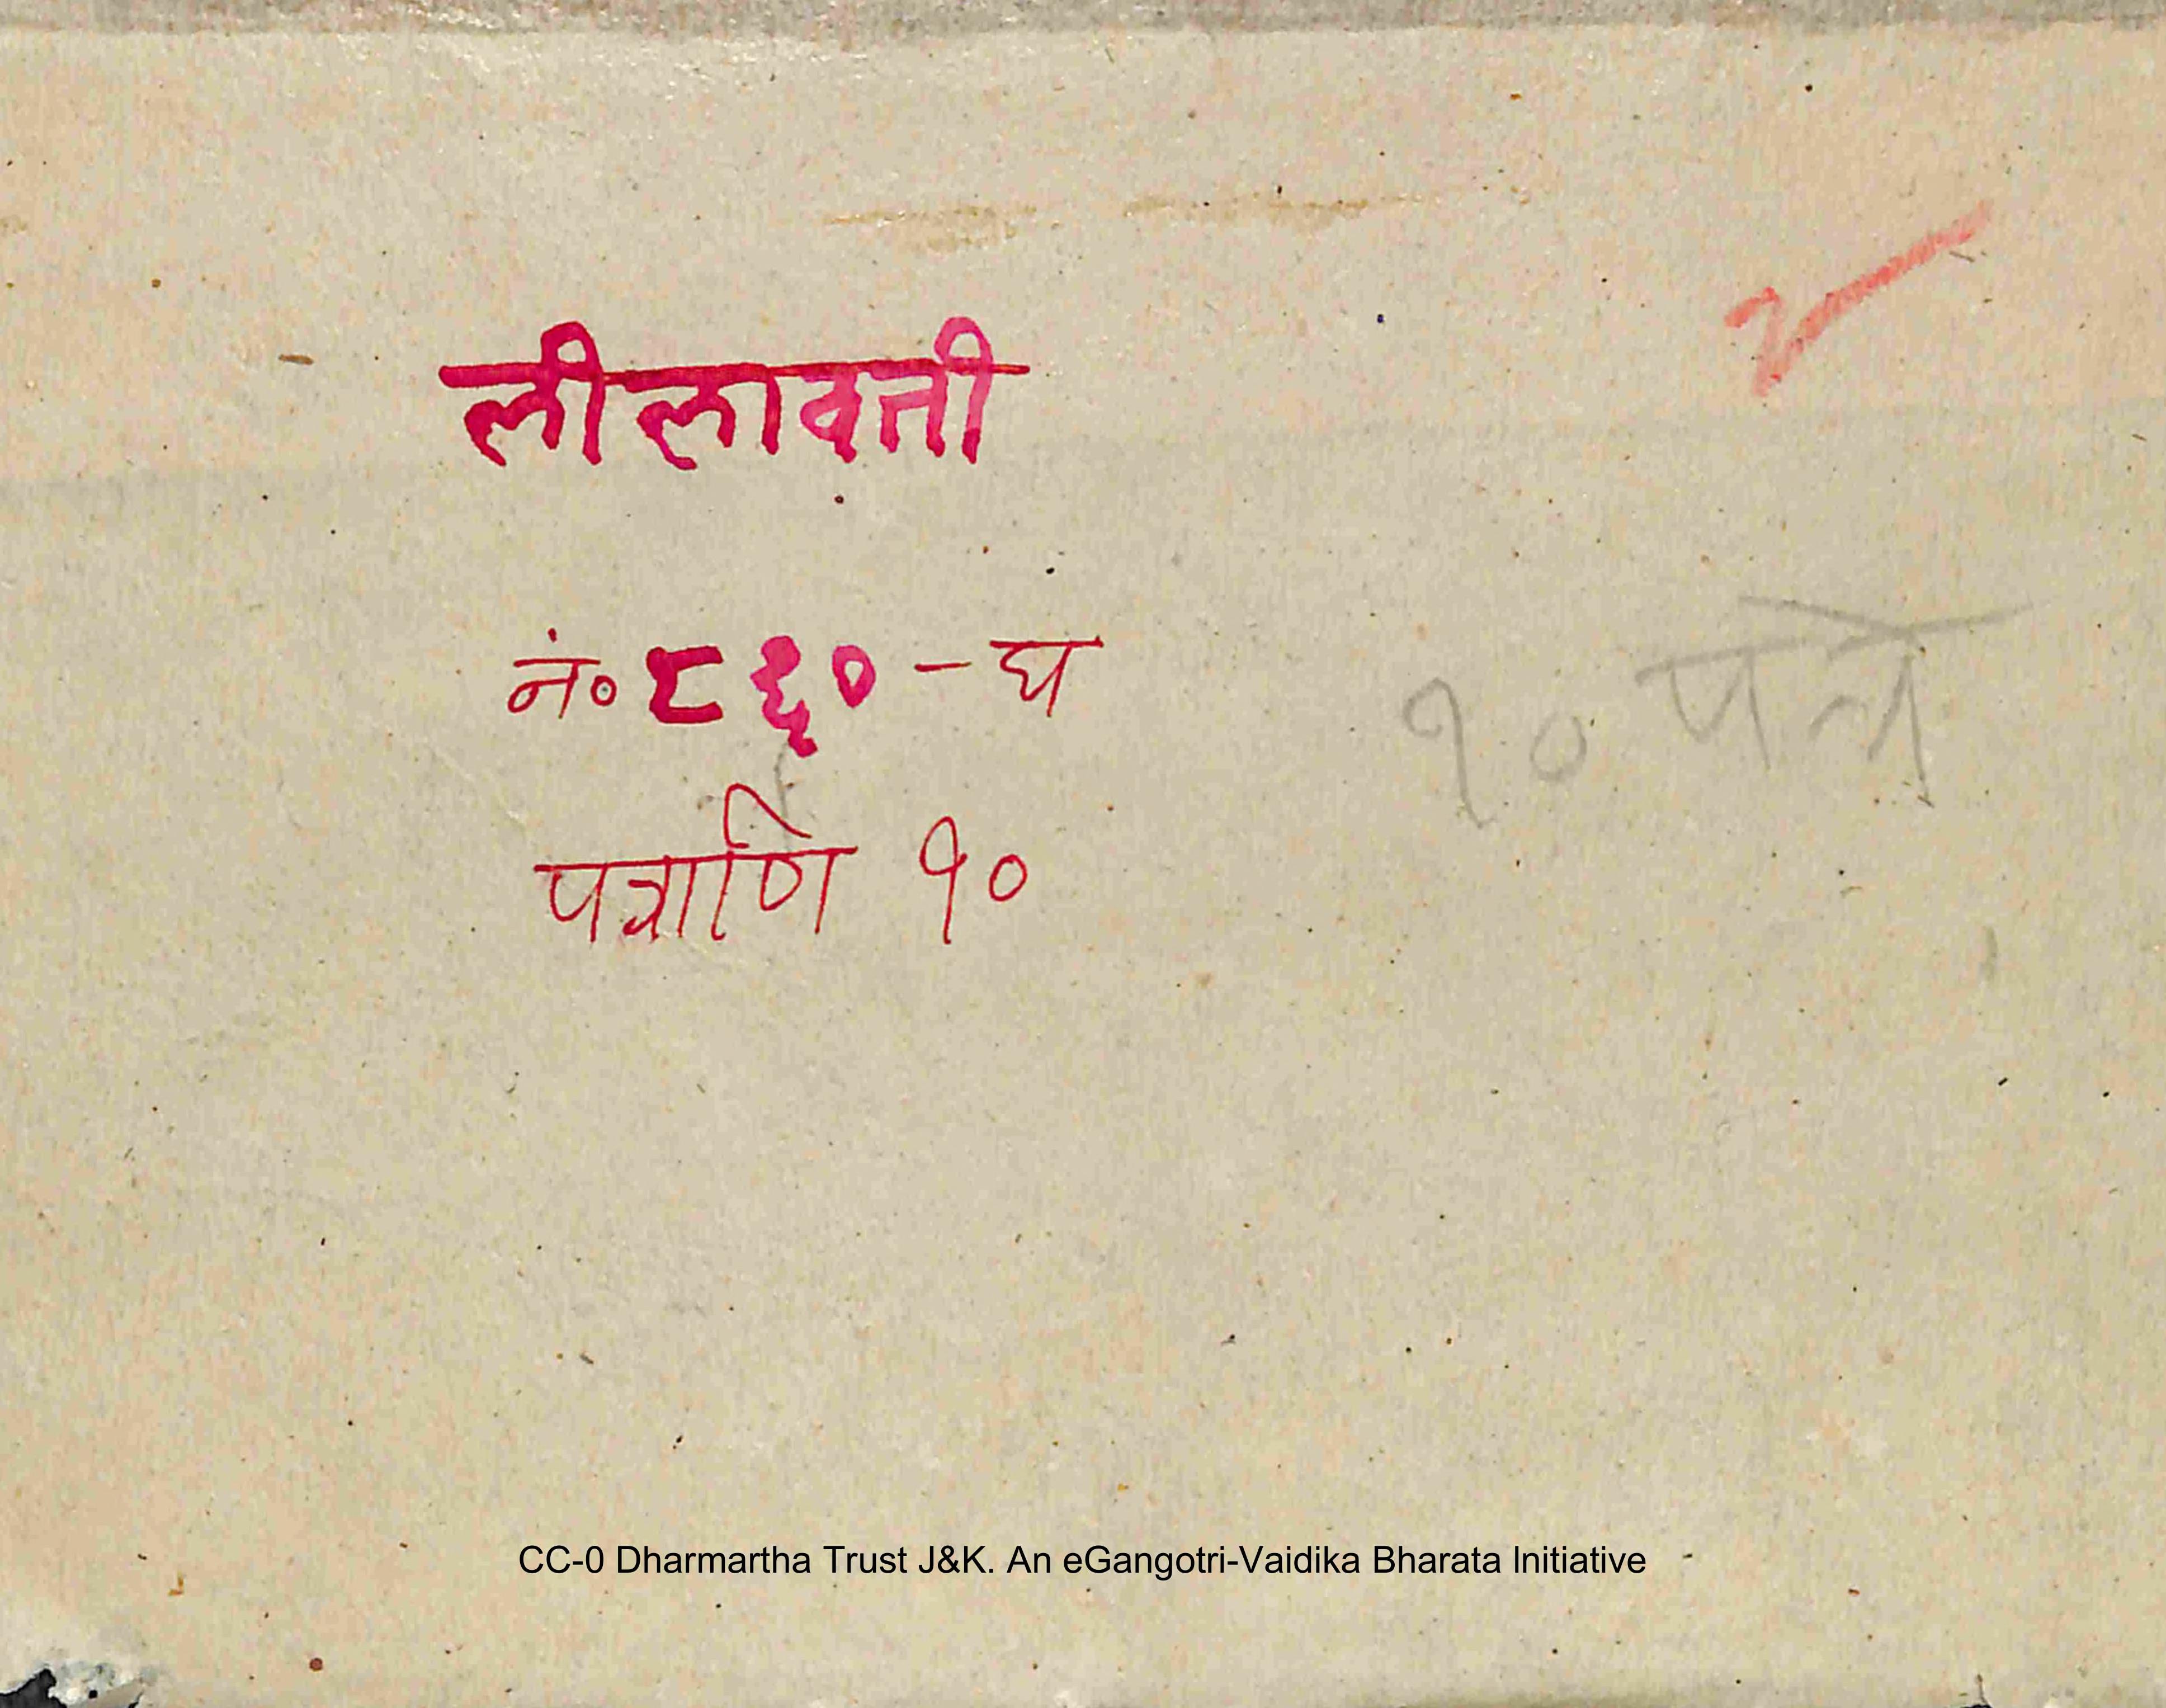 लीलावती
नं० ८६० - घ
१० पत्रे
पत्राणि १०
CC-0 Dharmartha Trust J&K. An eGangotri-Vaidika Bharata Initiative